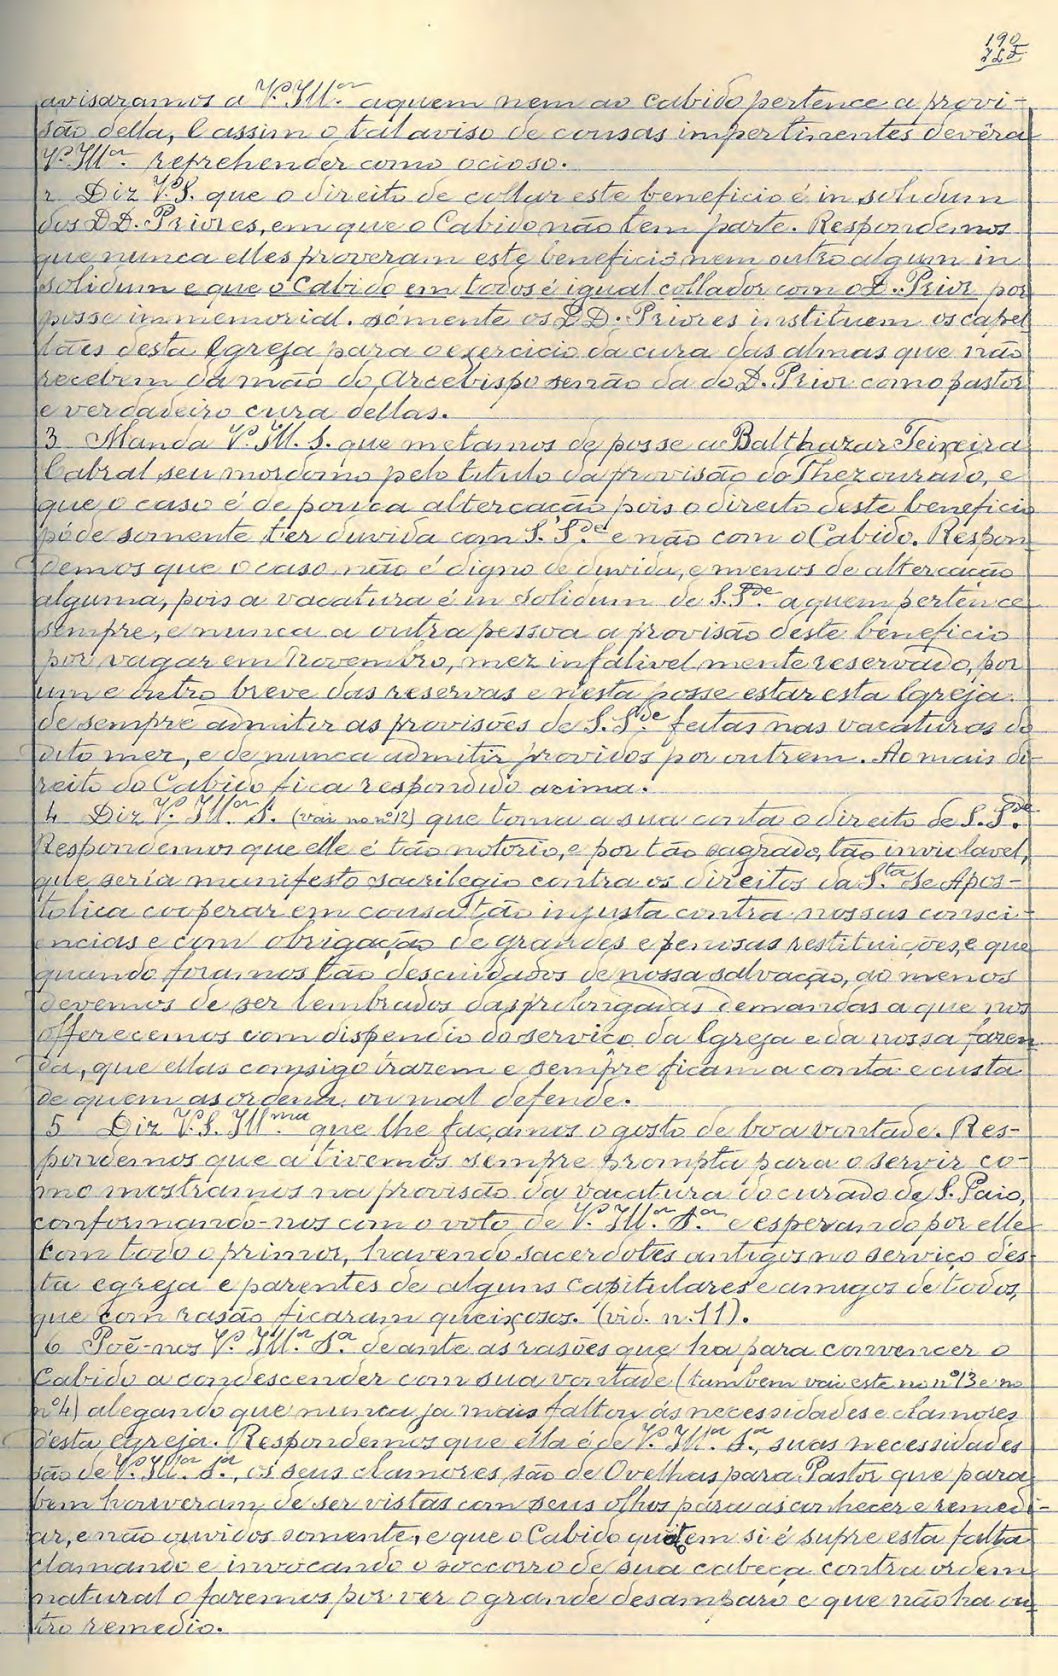 190
avisaramos a V. Ill.ma aquem nem ao Cabido pertence a provi-
são della, e assim o tal aviso de cousas impertinentes devêra
V. Ill.ma reprehender como ocioso.
2 Diz V. S. que o direito de collar este beneficio é in solidum
dos D D. Priores, em que o Cabido não tem parte. Respondemos
que nunca elles proveram este beneficio nem outro algum in
solidum e que o Cabido em todos é igual collador com o D. Prior por
posse immemorial. sómente os D D. Priores instituem os capel
lães desta Igreja para o exercicio da cura das almas que não
recebem da mão do Arcebispo senão da do D. Prior como pastor
e verdadeiro cura dellas.
3 Manda V. Ill. S. que metamos de posse a Balthazar Teixeira
Cabral seu mordomo pelo titulo da provisão do Thezourado, e
que o caso é de pouca altercação pois o direito deste beneficio
póde somente ter duvida com S. S.de e não com o Cabido. Respon
demos que o caso não é digno de duvida, e menos de altercação
alguma, pois a vacatura é in solidum de S. S.de a quem pertence
sempre, e nunca a outra pessoa a provisão deste beneficio
por vagar em Novembro, mez infalivelmente reservado, por
um e outro breve das reservas e n'esta posse estar esta Igreja
de sempre admitir as provisões de S. S.de feitas nas vacaturas do
dito mez, e de nunca admitir providos por outrem. Ao mais di-
reito do Cabido fica respondido acima.
4 Diz V. Ill.ma S. (vai no nº 12) que toma a sua conta o direito de S. S.de
Respondemos que elle é tão notorio, e por tão sagrado, tão inviolavel,
que seria manifesto sacrilegio contra os direitos da S.ta Sé Apos-
tolica cooperar em cousa tão injusta contra nossas consci-
encias e com obrigação de grandes e penosas restituições, e que
quando foramos tão descuidados de nossa salvação, ao menos
devemos de ser lembrados das prolongadas demandas a que nos
offerecemos com dispendio do serviço da Igreja e da nossa fazen
da, que ellas comsigo trazem e sempre ficam a conta e custa
de quem as ordena ou mal defende.
5 Diz V. S. Ill.ma que lhe façamos o gosto de boa vontade. Res-
pondemos que a tivemos sempre prompta para o servir co-
mo mostramos na provisão da vacatura do curado de S. Paio,
conformando-nos com o voto de V. Ill.ma S.a e esperando por elle
com todo o primor, havendo sacerdotes antigos no serviço des-
ta egreja e parentes de alguns capitulares e amigos de todos,
que com rasão ficaram queixosos. (vid. n. 11).
6 Poẽ-nos V. Ill.ma S.a deante as rasões que ha para convencer o
Cabido a condescender com sua vontade (tambem vai este no nº 13 e no
nº 4) alegando que nunca ja mais faltou ás necessidades e clamores
desta egreja. Respondemos que ella é de V. Ill.ma S.a, suas necessidades
são de V. Ill.ma S.a, os seus clamores são de Ovelhas para Pastor que para
bem houveram de ser vistas com seus olhos para as conhecer e remedi-
ar, e não ouvidos somente, e que o Cabido em si é supre esta falta
clamando e invocando o soccorro de sua cabeça contra ordem
natural o fazemos por ver o grande desamparo e que não ha ou
tro remedio.